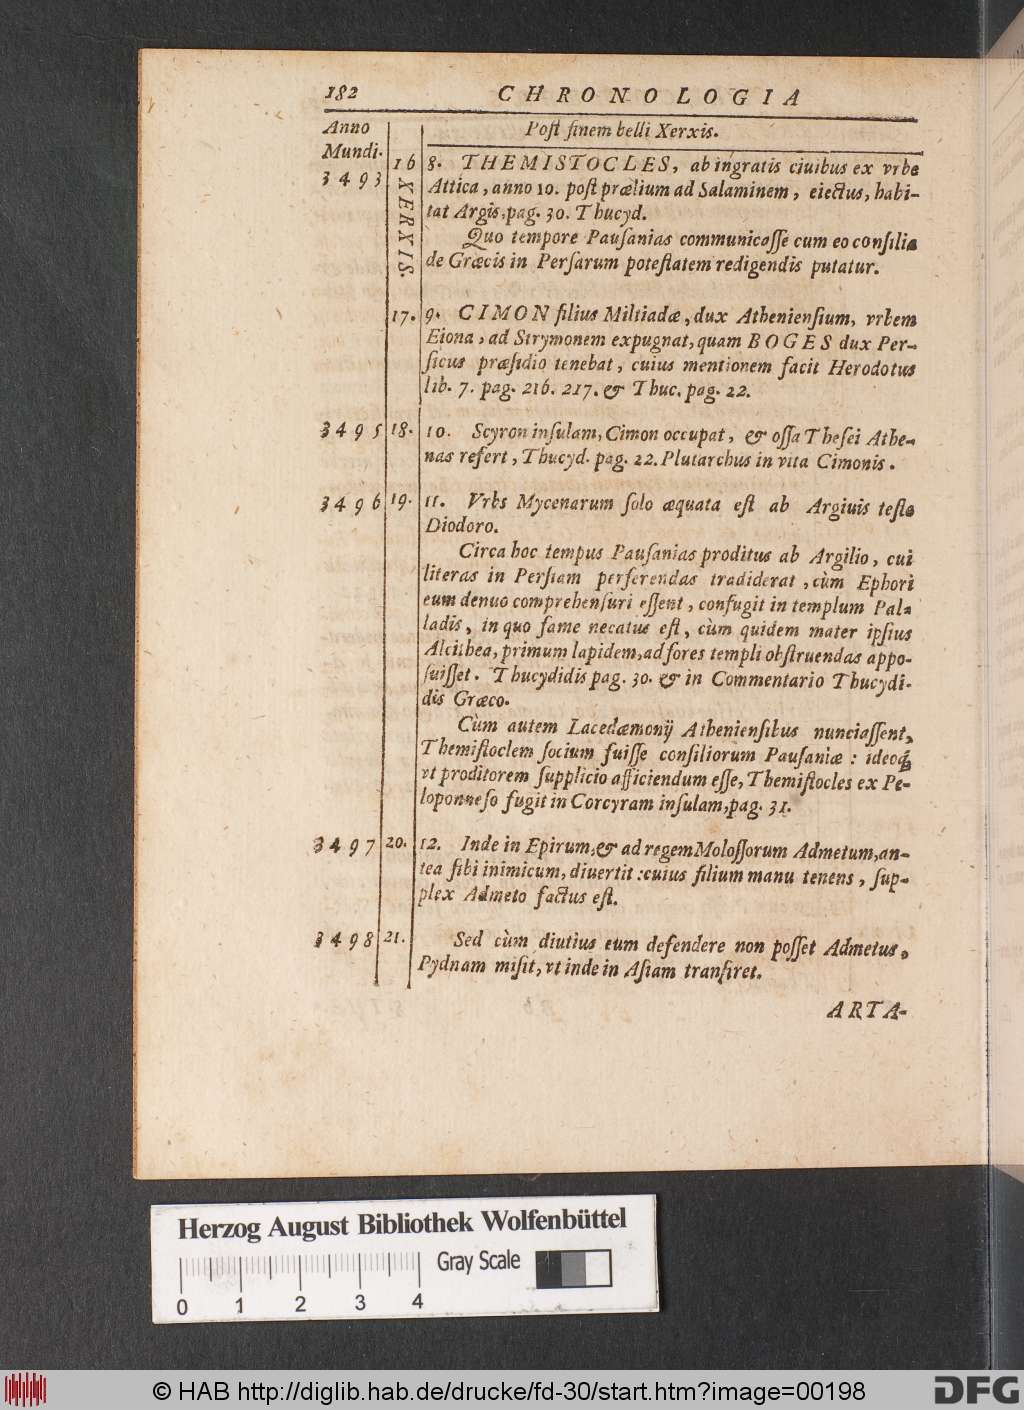 182 CHRONOLOGIA
Anno Mundi.
Post finem belli Xerxis.
3493 16 8. THEMISTOCLES, ab ingratis ciuibus ex vrbe
XERXIS.
Attica, anno 10. post prælium ad Salaminem, eiectus, habi-
tat Argis, pag. 30. Thucyd.
Quo tempore Pausanias communicasse cum eo consilia
de Græcis in Persarum potestatem redigendis putatur.
17. 9. CIMON filius Miltiadæ, dux Atheniensium, vrbem
Eiona, ad Strymonem expugnat, quam BOGES dux Per-
sicus præsidio tenebat, cuius mentionem facit Herodotus
lib. 7. pag. 216. 217. & Thuc. pag. 22.
3495 18. 10. Scyron insulam, Cimon occupat, & ossa Thesei Athe-
nas refert, Thucyd. pag. 22. Plutarchus in vita Cimonis.
3496 19. 11. Vrbs Mycenarum solo æquata est ab Argiuis teste
Diodoro.
Circa hoc tempus Pausanias proditus ab Argilio, cui
literas in Persiam perferendas tradiderat, cùm Ephori
eum denuo comprehensuri essent, confugit in templum Pal-
ladis, in quo fame necatus est, cùm quidem mater ipsius
Alcithea, primum lapidem, ad fores templi obstruendas appo-
suisset. Thucydidis pag. 30. & in Commentario Thucydi-
dis Græco.
Cùm autem Lacedæmonij Atheniensibus nunciassent,
Themistoclem socium fuisse consiliorum Pausaniæ: ideoq́;
vt proditorem supplicio afficiendum esse, Themistocles ex Pe-
loponneso fugit in Corcyram insulam, pag. 31.
3497 20. 12. Inde in Epirum, & ad regem Molossorum Admetum, an-
tea sibi inimicum, diuertit: cuius filium manu tenens, sup-
plex Admeto factus est.
3498 21. Sed cùm diutius eum defendere non posset Admetus,
Pydnam misit, vt inde in Asiam transiret.
ARTA-
Herzog August Bibliothek Wolfenbüttel
Gray Scale
0 1 2 3 4
© HAB http://diglib.hab.de/drucke/fd-30/start.htm?image=00198
DFG